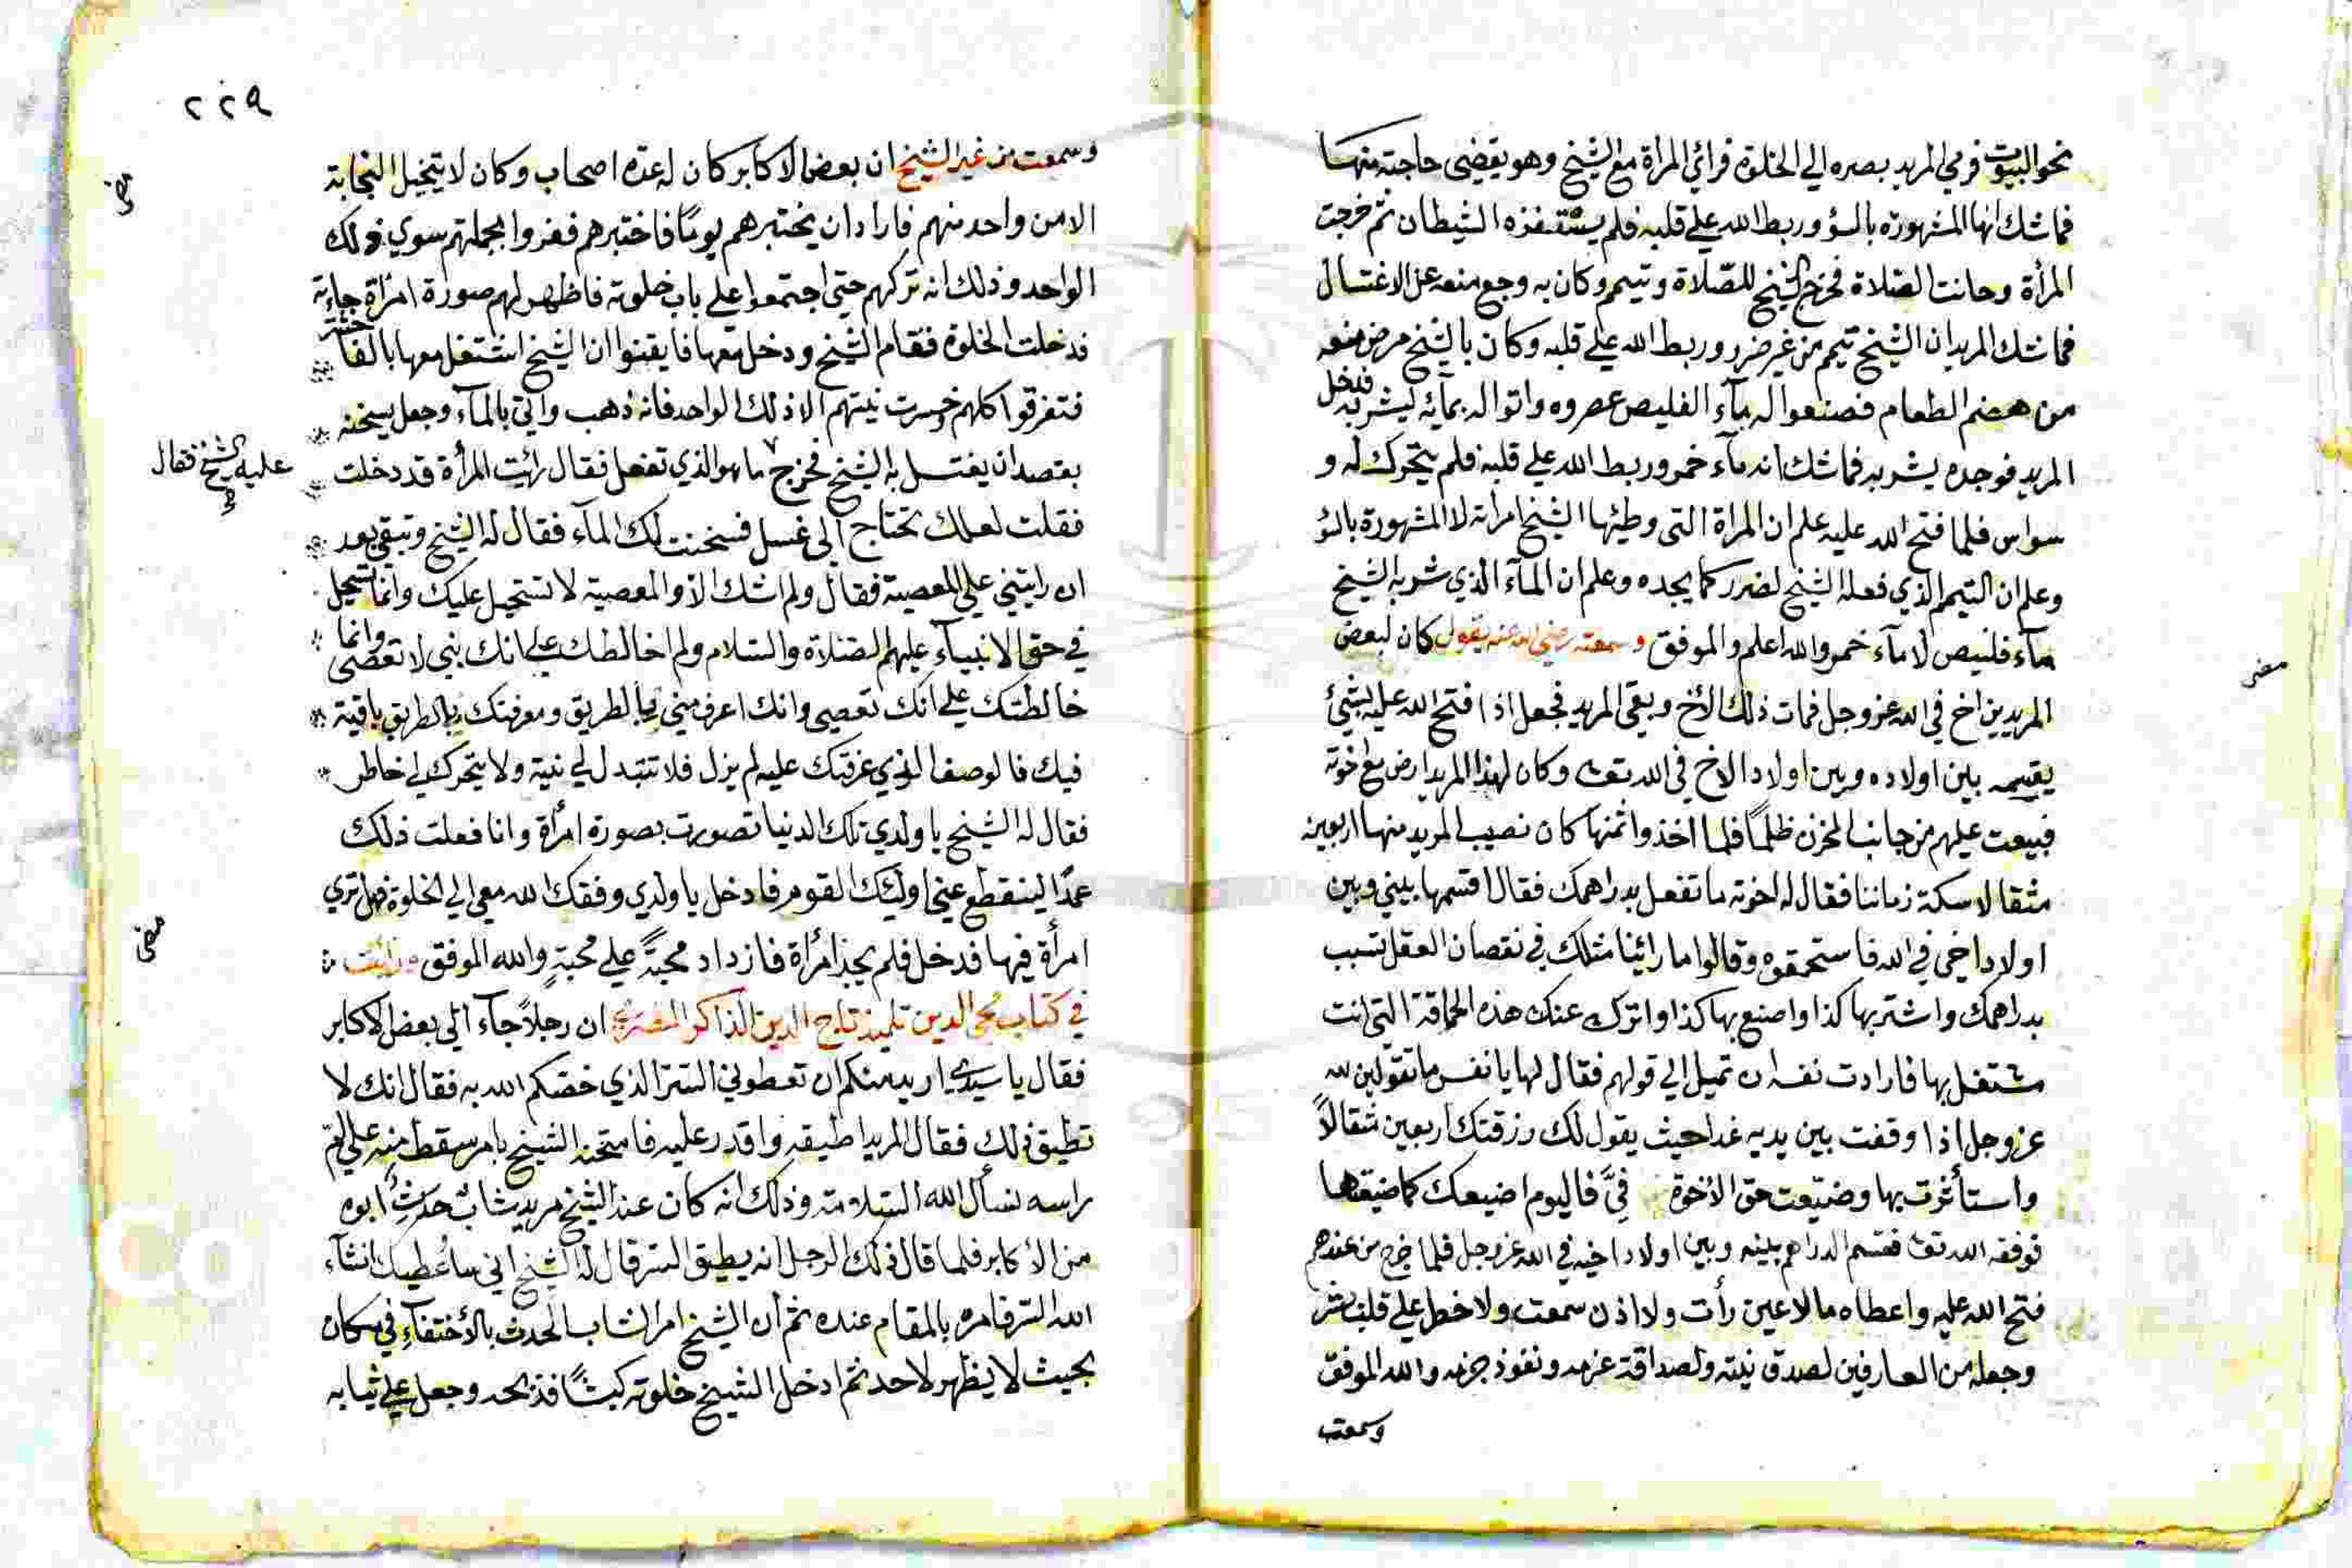 نحو البيوت فرمي المريد بصره الي الخلوة فرائي المراة مع الشيخ وهو يقضي حاجته منها
فما شك انها المشهورة بالسؤ وربط الله علي قلبه فلم يستفزه الشيطان ثم خرجت
المرأة وحانت الصلاة فخرج الشيخ للصلاة وتيمم وكان به وجع منعه عن الاغتسال
فما شك المريد ان الشيخ تيمم من غير ضرر وربط الله علي قلبه وكان بالشيخ مرض منعه
من هضم الطعام فصنعوا له مآء الفليص عصروه واتوا له بمائه ليشربه فدخل
المريد فوجده يشربه فما شك انه مآء خمر وربط الله علي قلبه فلم يتحرك له و
سواس فلما فتح الله عليه علم ان المراة التي وطئها الشيخ امراته لا المشهورة بالسؤ
وعلم ان التيمم الذي فعله الشيخ لضرر كما يجده وعلم ان المآء الذي شربه الشيخ
مآء فليص لا مآء خمر والله اعلم والموفق وسمعته رضي الله عنه يقول كان لبعض
مضى
المريدين اخ في الله عز وجل فمات ذلك الأخ وبقي المريد فجعل اذا فتح الله عليه بشيئ
يقسمه بين اولاده وبين اولاد الاخ في الله تعا وكان لهذا المريد ارض مع اخوته
فبيعت عليهم من جانب المخزن ظلمًا فلما اخذوا ثمنها كان نصيب المريد منها اربعين
مثقالا سكة زماننا فقال له اخوته ما تفعل بدراهمك فقال اقسمها بيني وبين
اولاد اخي في الله فاستحمقوه وقالوا ما رائينا مثلك في نقصان العقل تسبب
بدراهمك واشتر بها كذا واصنع بها كذا واترك عنك هذه الحماقة التي انت
مشتغل بها فارادت نفسه ان تميل الي قولهم فقال لها يا نفس ما تقولين لله
عز وجل اذا وقفت بين يديه غدا حيث يقول لك رزقتك اربعين مثقالاً
واستأثرت بها وضيعت حق الأخوة فيَّ فاليوم اضيعك كما ضيعتها
فوفقه الله تعا فقسم الدراهم بينه وبين اولاد اخيه في الله عز وجل فلما خرج من عندهم
فتح الله عليه واعطاه ما لا عين رأت ولا اذن سمعت ولا خطر علي قلب بشر
وجعله من العارفين لصدق نيته ولصداقة عزمه ونفوذ جزمه والله الموفق
وسمعت
٢٢٩
وسمعت من غير الشيخ ان بعض الاكابر كان له عدة اصحاب وكان لا يتخيل النجابة
الا من واحد منهم فاراد ان يختبرهم يومًا فاختبرهم ففروا بجملتهم سوي ذلك
الواحد وذلك انه تركهم حتي اجتمعوا علي باب خلوته فاظهر لهم صورة امرأة جاءته
فدخلت الخلوة فقام الشيخ ودخل معها فايقنوا ان الشيخ اشتغل معها بالفاحشة
فتفرقوا كلهم وخسرت نيتهم الا ذلك الواحد فانه ذهب واتي بالمآء وجعل يسخنه
بقصد ان يغتسل به الشيخ فخرج ما هو الذي تفعل فقال رائت المرأة قد دخلت
عليه الشيخ فقال
فقلت لعلك تحتاج الي غسل فسخنت لك المآء فقال له الشيخ وتبقي بعد
ان رايتني علي المعصية فقال ولم اشك لأن المعصية لا تستحيل عليك وانما تستحيل
في حق الانبيآء عليهم الصلاة والسلام ولم اخالطك علي انك نبي لا تعصي وانما
خالطتك علي انك تعصي وانك اعرف مني بالطريق ومعرفتك بالطريق باقية
فيك فالوصف الذي عرفتك عليه لم يزل فلا تتبدل لي نية ولا يتحرك لي خاطر
فقال له الشيخ يا ولدي تلك الدنيا تصورت بصورة امرأة وانا فعلت ذلك
عمدًا لينقطع عني اولئك القوم فادخل يا ولدي وفقك الله معي الي الخلوة فهل تري
امرأة فيها فدخل فلم يجد امرأة فازداد محبةً علي محبةٍ والله الموفق ورائت
مضى
في كتاب محي الدين تلميذ تاج الدين الذاكر المصري ان رجلاً جآء الي بعض الاكابر
فقال يا سيدي اريد منكم ان تعطوني السر الذي خصكم الله به فقال انك لا
تطيق ذلك فقال المريد اطيقه واقدر عليه فامتحنه الشيخ بامر سقط منه علي ام
راسه نسأل الله السلامة وذلك انه كان عند الشيخ مريد شاب حدث ابوه
من الأكابر فلما قال ذلك الرجل انه يطيق السر قال له الشيخ اني ساعطيك انشآء
الله السر فامره بالمقام عنده ثم ان الشيخ امر الشاب الحدث بالأختفآء في مكان
بحيث لا يظهر لاحد ثم ادخل الشيخ خلوته كبشًا فذبحه وجعل علي ثيابه